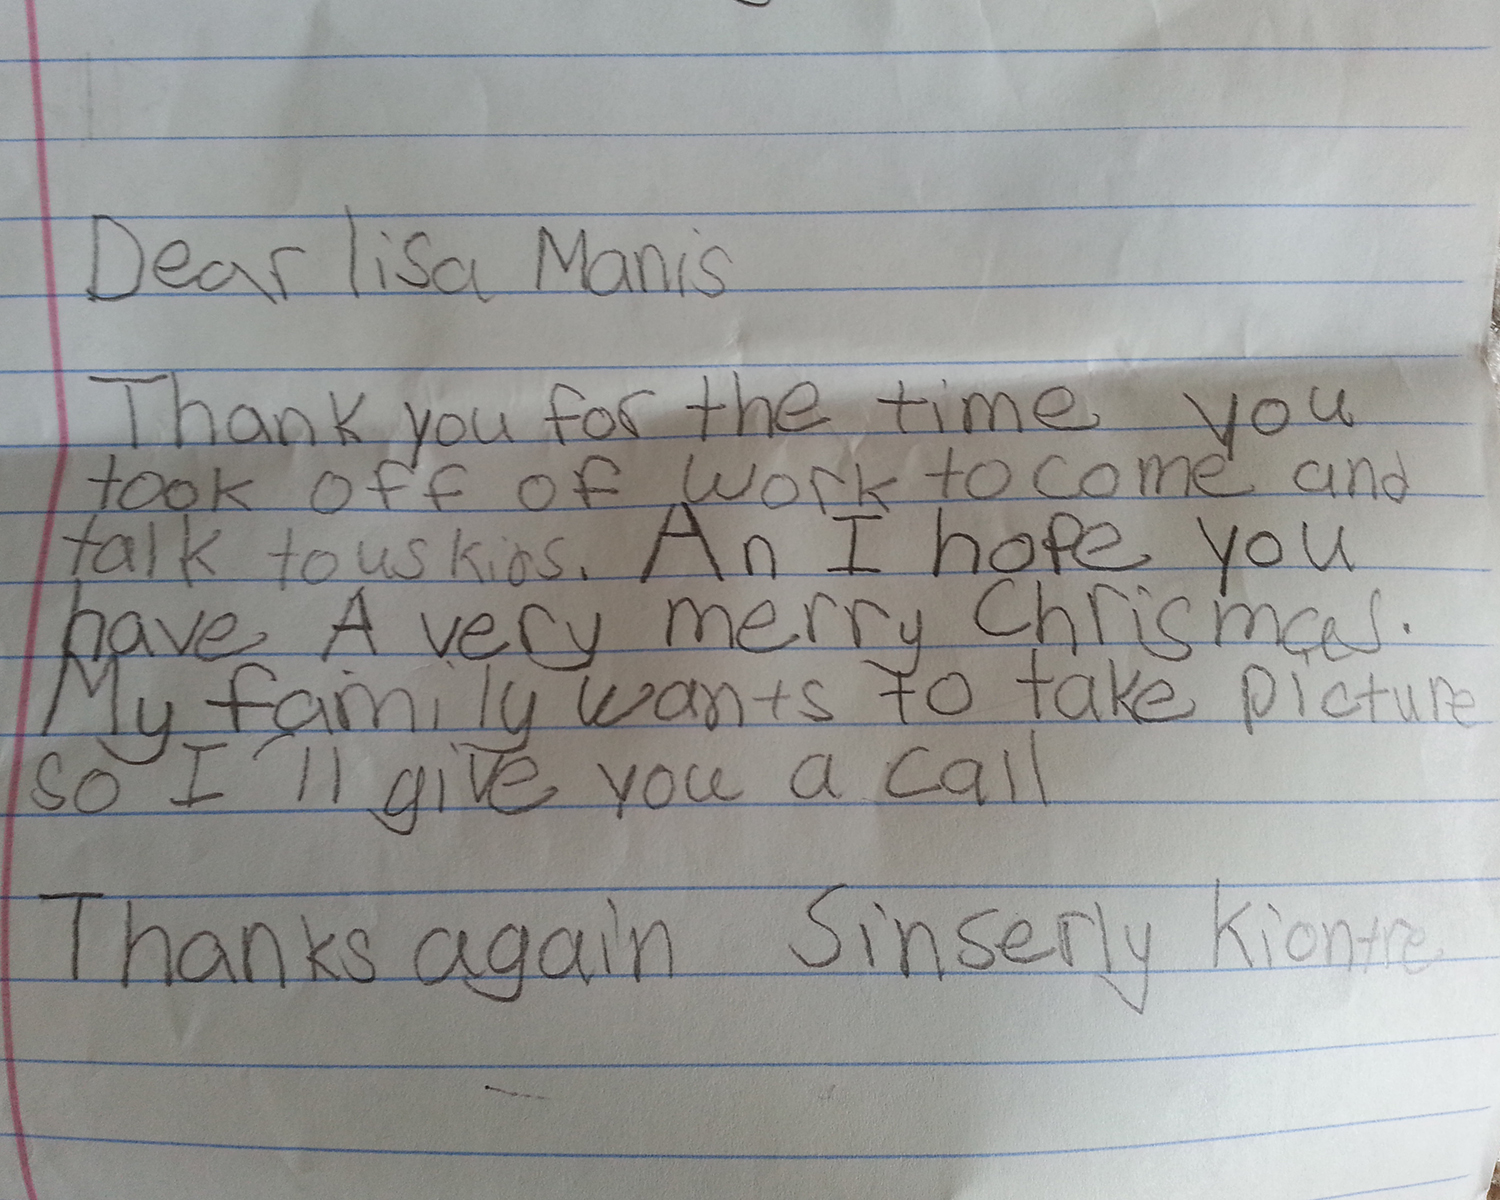 Dear lisa Manis
Thank you for the time you
took off of work to come and
talk to us kids. An I hope you
have A very merry Chrismas.
My family wants to take picture
so I'll give you a call
Thanks again Sinserly Kiontre